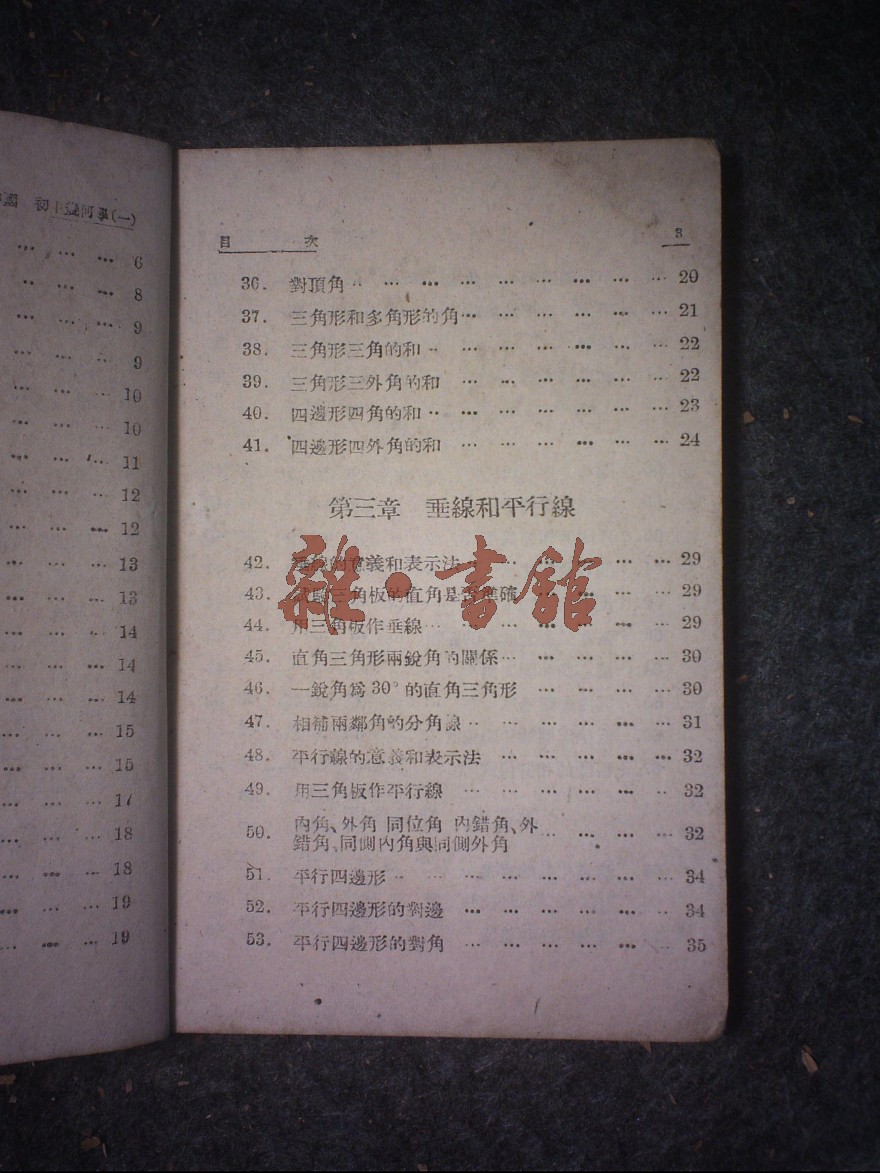 初中幾何學(一)
6
8
9
9
10
10
11
12
12
13
13
14
14
14
15
15
17
18
18
19
19
目 次 3
36. 對頂角 … … … … … … … … … 20
37. 三角形和多角形的角 … … … … … … 21
38. 三角形三角的和 … … … … … … … 22
39. 三角形三外角的和 … … … … … … 22
40. 四邊形四角的和 … … … … … … … 23
41. 四邊形四外角的和 … … … … … … 24
第三章 垂線和平行線
42. 垂線的意義和表示法 … … … … … … 29
43. 試驗三角板的直角是否準確 … … … … 29
44. 用三角板作垂線 … … … … … … … 29
45. 直角三角形兩銳角的關係 … … … … … 30
46. 一銳角為30°的直角三角形 … … … … 30
47. 相補兩鄰角的分角線 … … … … … … 31
48. 平行線的意義和表示法 … … … … … 32
49. 用三角板作平行線 … … … … … … 32
50. 內角、外角 同位角 內錯角、外
錯角、同側內角與同側外角 … … … … 32
51. 平行四邊形 … … … … … … … … 34
52. 平行四邊形的對邊 … … … … … … 34
53. 平行四邊形的對角 … … … … … … 35
雜·書館